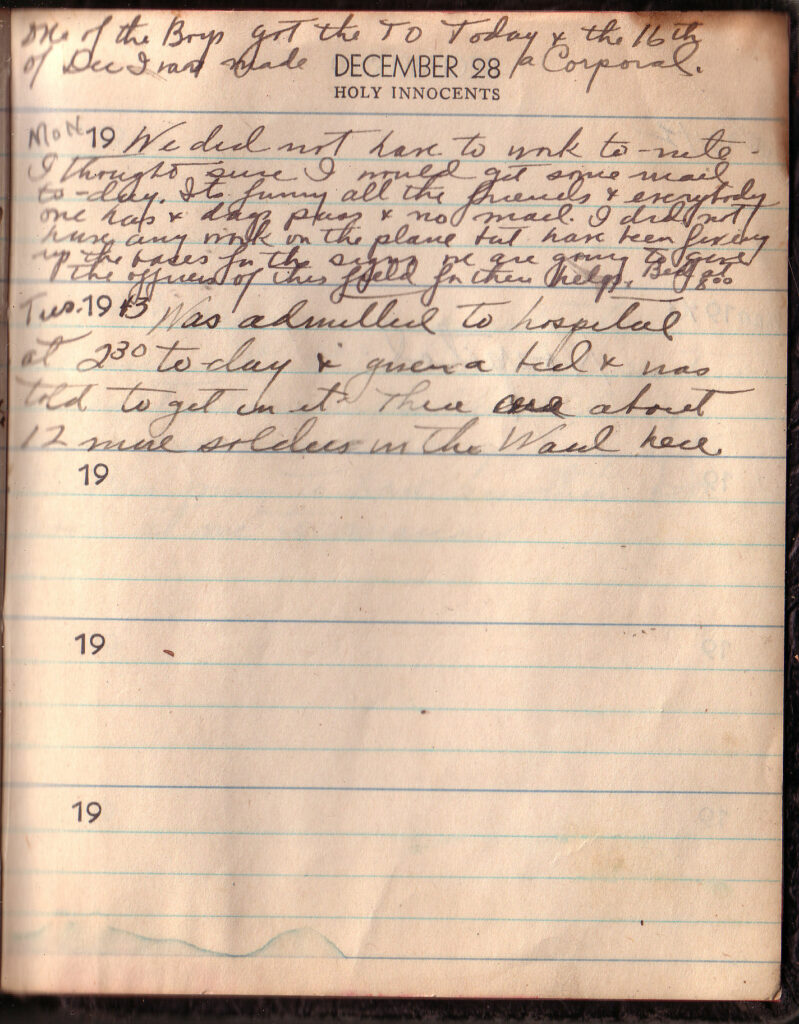 one of the Boys got the TO Today & the 16th
of Dec I was made a Corporal.
DECEMBER 28
HOLY INNOCENTS
Mon 19 We did not have to work to-nite -
I thought sure I would get some mail
to-day. Its funny all the friends & everybody
one has & days pass & no mail. I did not
have any work on the plane but have been fixing
up the bases for the signs we are going to give
the officers of this field for their help. Bed at 800
Tues. 1943 Was admitted to hospital
at 2 30 to day & given a bed & was
told to get in it. There are about
12 more soldiers in the Ward here.
19
19
19